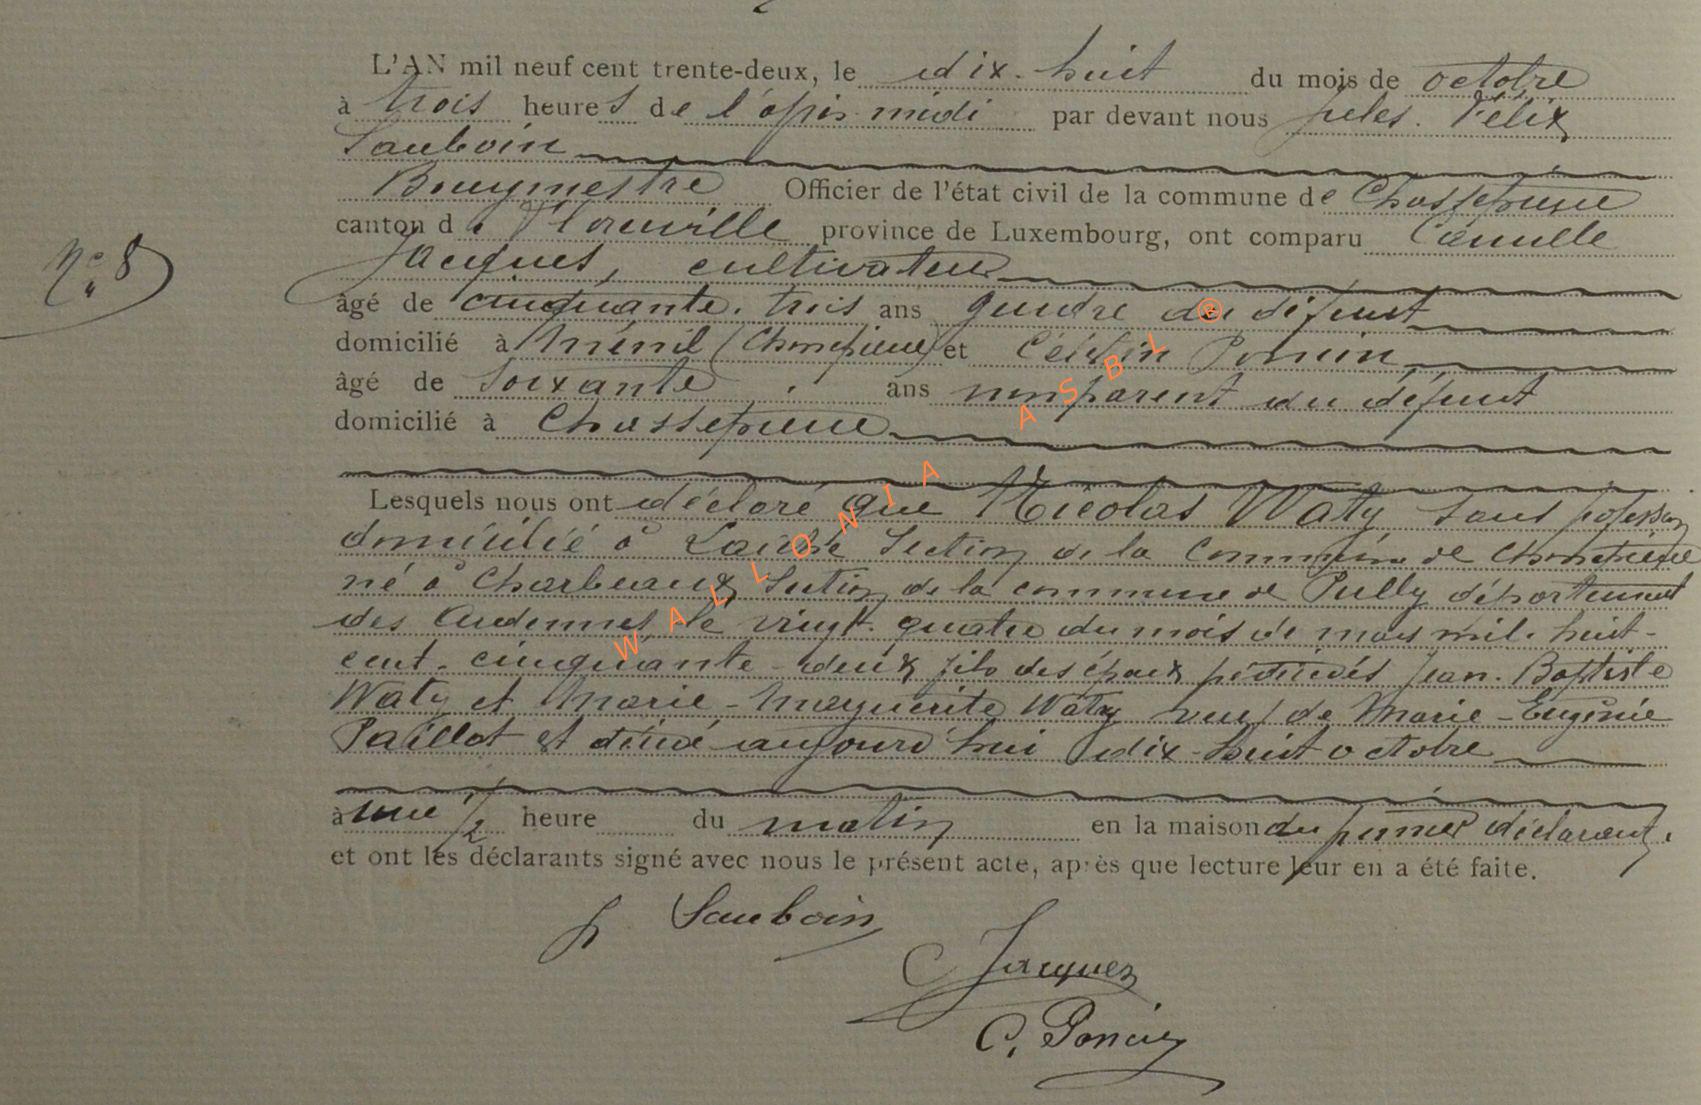 L'AN mil neuf cent trente-deux, le dix-huit du mois de octobre
à trois heures de l'après midi par devant nous Jules Félix
Sauboin
Bourgmestre Officier de l'état civil de la commune de Chassepierre
canton de Florenville province de Luxembourg, ont comparu Camille
Jacques, cultivateur
N° 8
âgé de cinquante-trois ans gendre du défunt
domicilié à Ménil (Chassepierre) et Célestin Poncin
âgé de soixante ans non parent du défunt
domicilié à Chassepierre
Lesquels nous ont déclaré que Nicolas Waty sans profession
domicilié à Laiche Section de la Commune de Chassepierre
né à Charbeaux Section de la commune de Puilly département
des Ardennes le vingt-quatre du mois de mil-huit-
cent-cinquante-deux fils des époux décédés Jean-Baptiste
Waty et Marie-Marguerite Watry veuf de Marie-Eugénie
Paillot et décédé aujourd'hui dix-huit octobre
à une 1/2 heure du matin en la maison du premier déclarant.
et ont les déclarants signé avec nous le présent acte, après que lecture leur en a été faite.
Sauboin
C Jacques
C. Poncin
WALLONIA ASBL ®